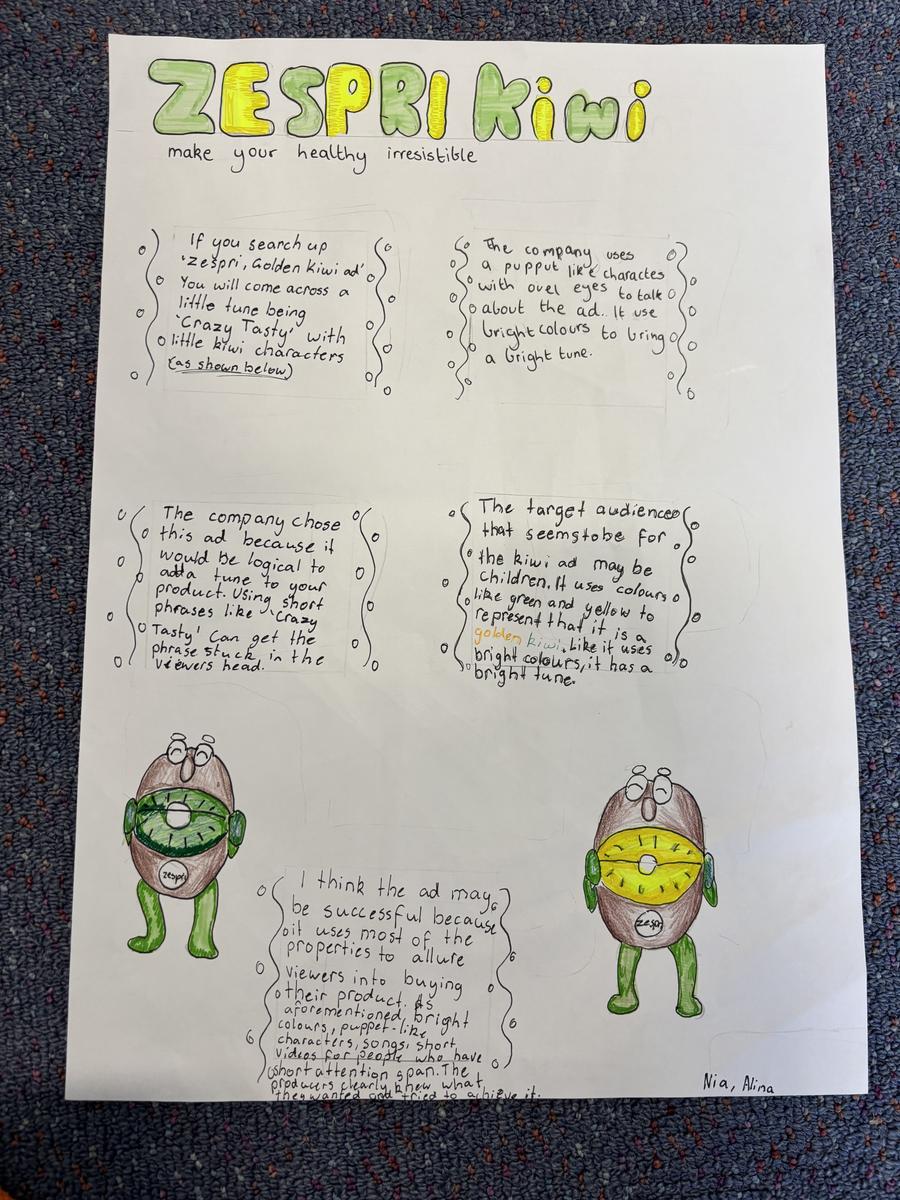 ZESPRI Kiwi
make your healthy irresistible
If you search up
'Zespri, Golden Kiwi ad'
You will come across a
little tune being
'Crazy Tasty' with
little kiwi characters
(as shown below)
The company uses
a pupput like charactes
with ovel eyes to talk
about the ad. It use
bright colours to bring
a bright tune.
The company chose
this ad because it
would be logical to
add a tune to your
product. Using short
phrases like 'Crazy
Tasty' can get the
phrase stuck in the
viewers head.
The target audience
that seems to be for
the kiwi ad may be
children. It uses colours
like green and yellow to
represent that it is a
golden kiwi. Like it uses
bright colours, it has a
bright tune.
zespri
zespri
I think the ad may
be successful because
it uses most of the
properties to allure
viewers into buying
their product. As
aforementioned, bright
colours, puppet-like
characters, songs, short
videos for people who have
short attention span. The
producers clearly knew what
they wanted and tried to achieve it.
Nia, Alina